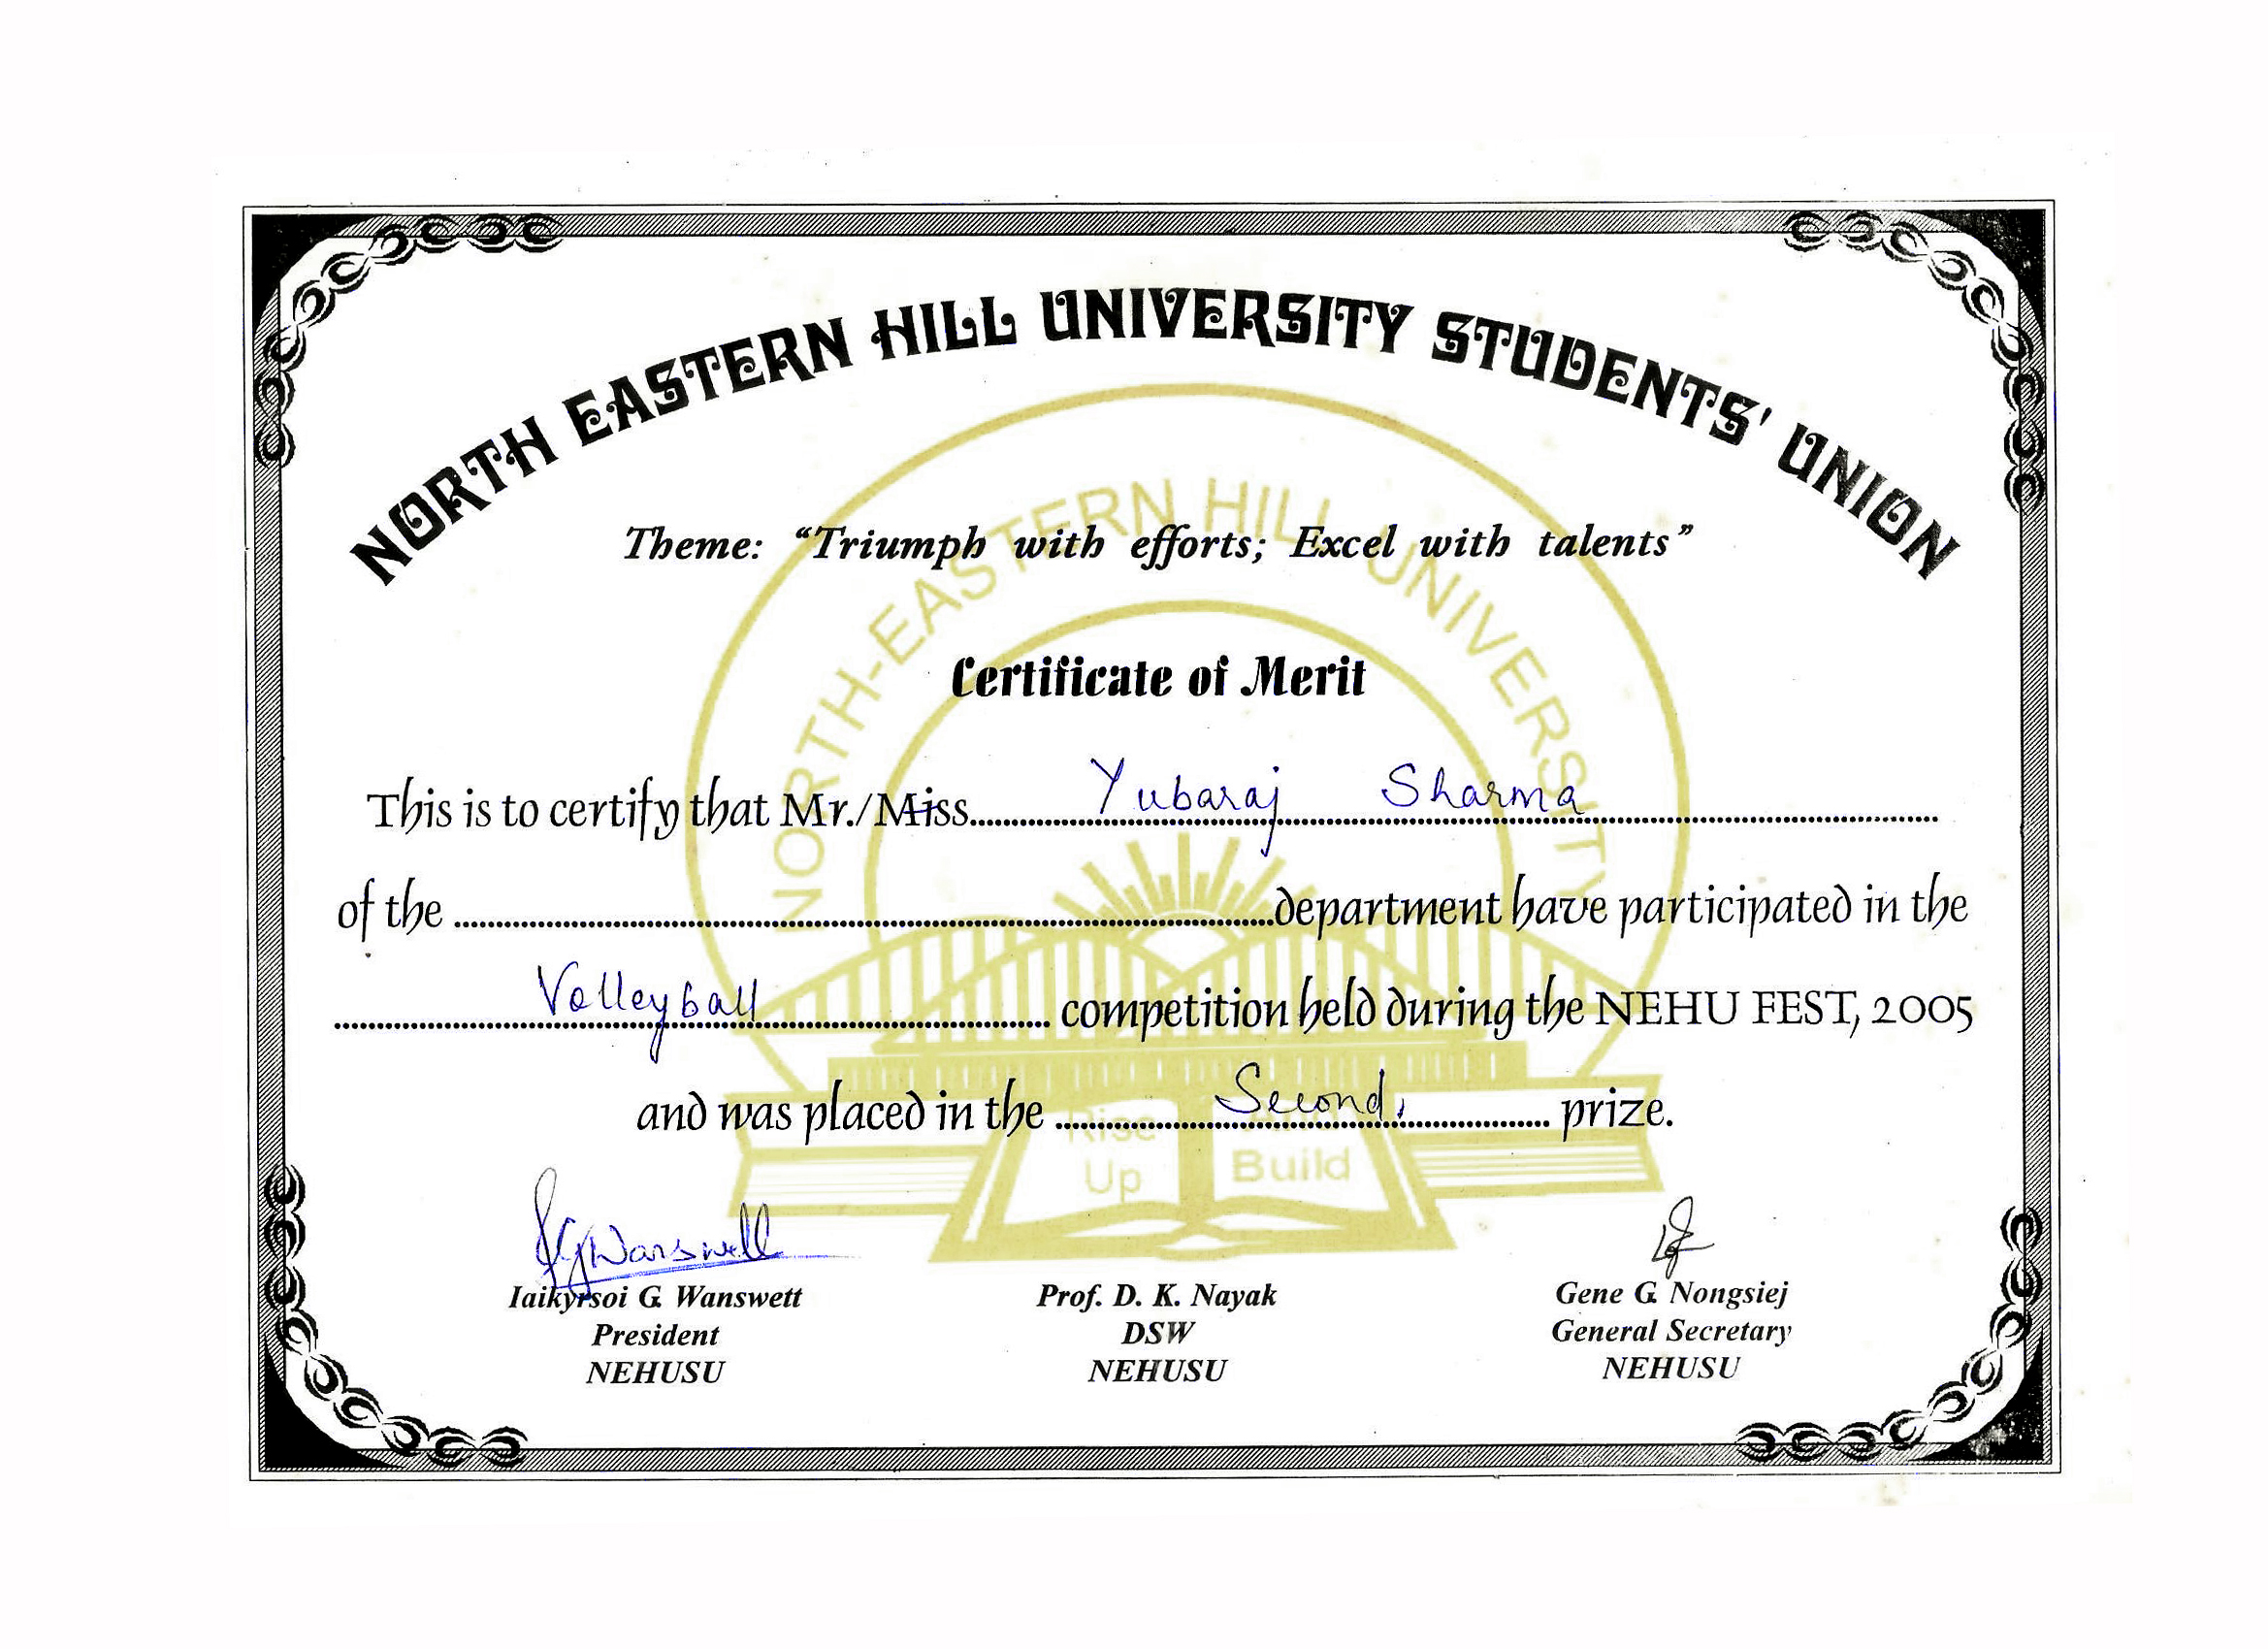 NORTH EASTERN HILL UNIVERSITY STUDENTS' UNION
NORTH-EASTERN HILL UNIVERSITY
Theme: “Triumph with efforts; Excel with talents”
Certificate of Merit
This is to certify that Mr./Miss....Yubaraj Sharma....
of the ....department have participated in the
....Volleyball.... competition held during the NEHU FEST, 2005
and was placed in the ....Second.... prize.
Rise And
Up Build
GWanswett
Iaikyrsoi G. Wanswett
President
NEHUSU
Prof. D. K. Nayak
DSW
NEHUSU
Gene G. Nongsiej
General Secretary
NEHUSU